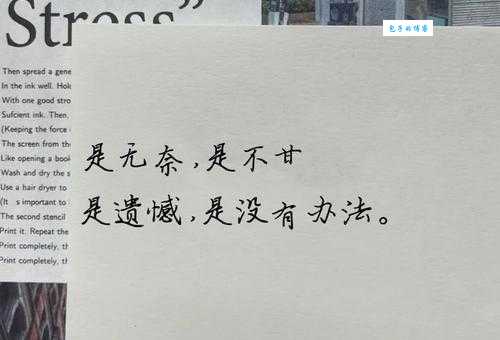 Stress”
包子的博客
Then spread a gene
In the ink well. Hol
With one good stro
Sufcient ink. Then,
(Keeping the force
The screen from the
Like opening a boo
Wash and dry the s
Use a hair dryer to
(It s important to
The second stencil
Print it. Repeat the
Print completely, th
Print completely, th
是无奈,是不甘
是遗憾,是没有办法。